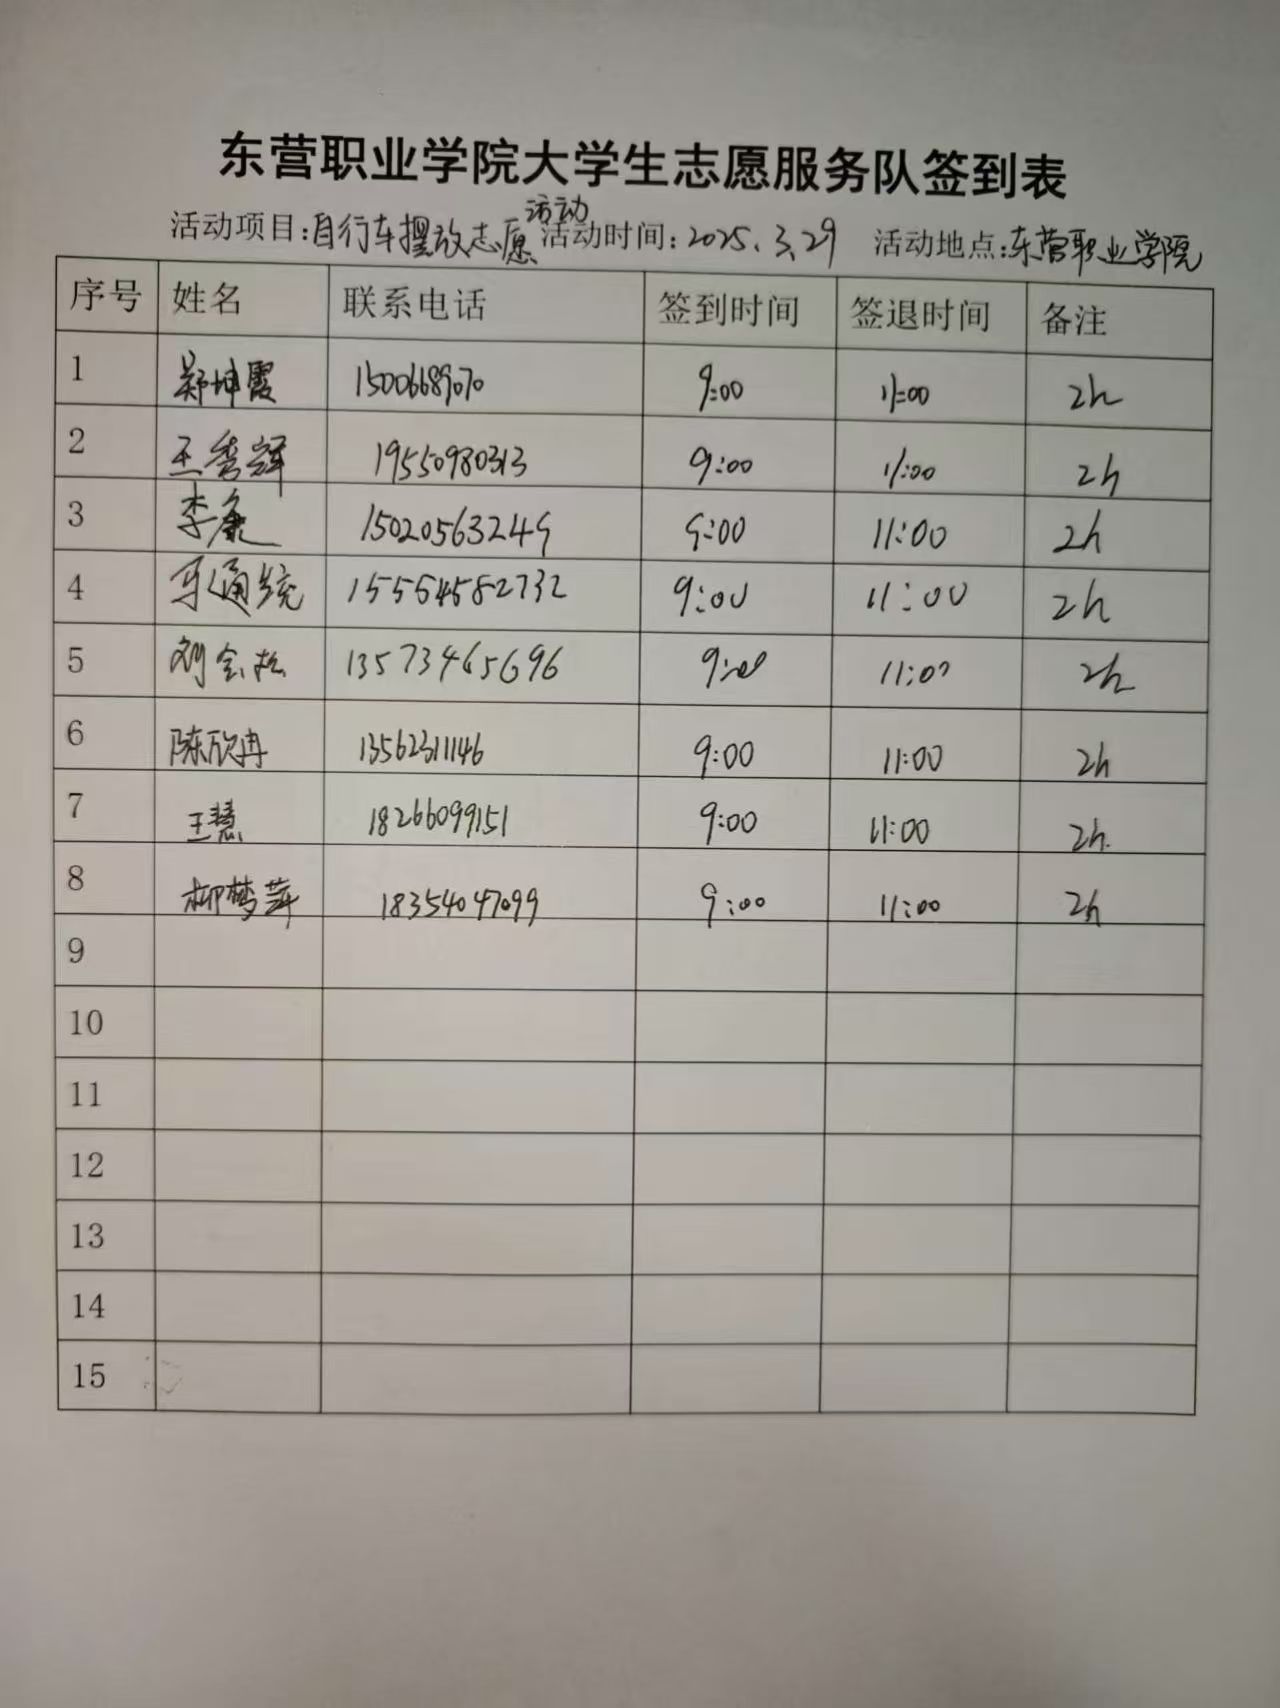 东营职业学院大学生志愿服务队签到表
活动项目:自行车摆放志愿活动 活动时间:2025.3.29 活动地点:东营职业学院
序号 姓名 联系电话 签到时间 签退时间 备注
1 郑坤霞 15006689070 9:00 11:00 2h
2 王秀辉 19550980313 9:00 11:00 2h
3 李康 15020563249 9:00 11:00 2h
4 通统 15554582732 9:00 11:00 2h
5 刘会松 13573465696 9:00 11:00 2h
6 陈欣冉 13562311146 9:00 11:00 2h
7 王慧 18266099151 9:00 11:00 2h.
8 柳梦萍 18354047099 9:00 11:00 2h
9
10
11
12
13
14
15